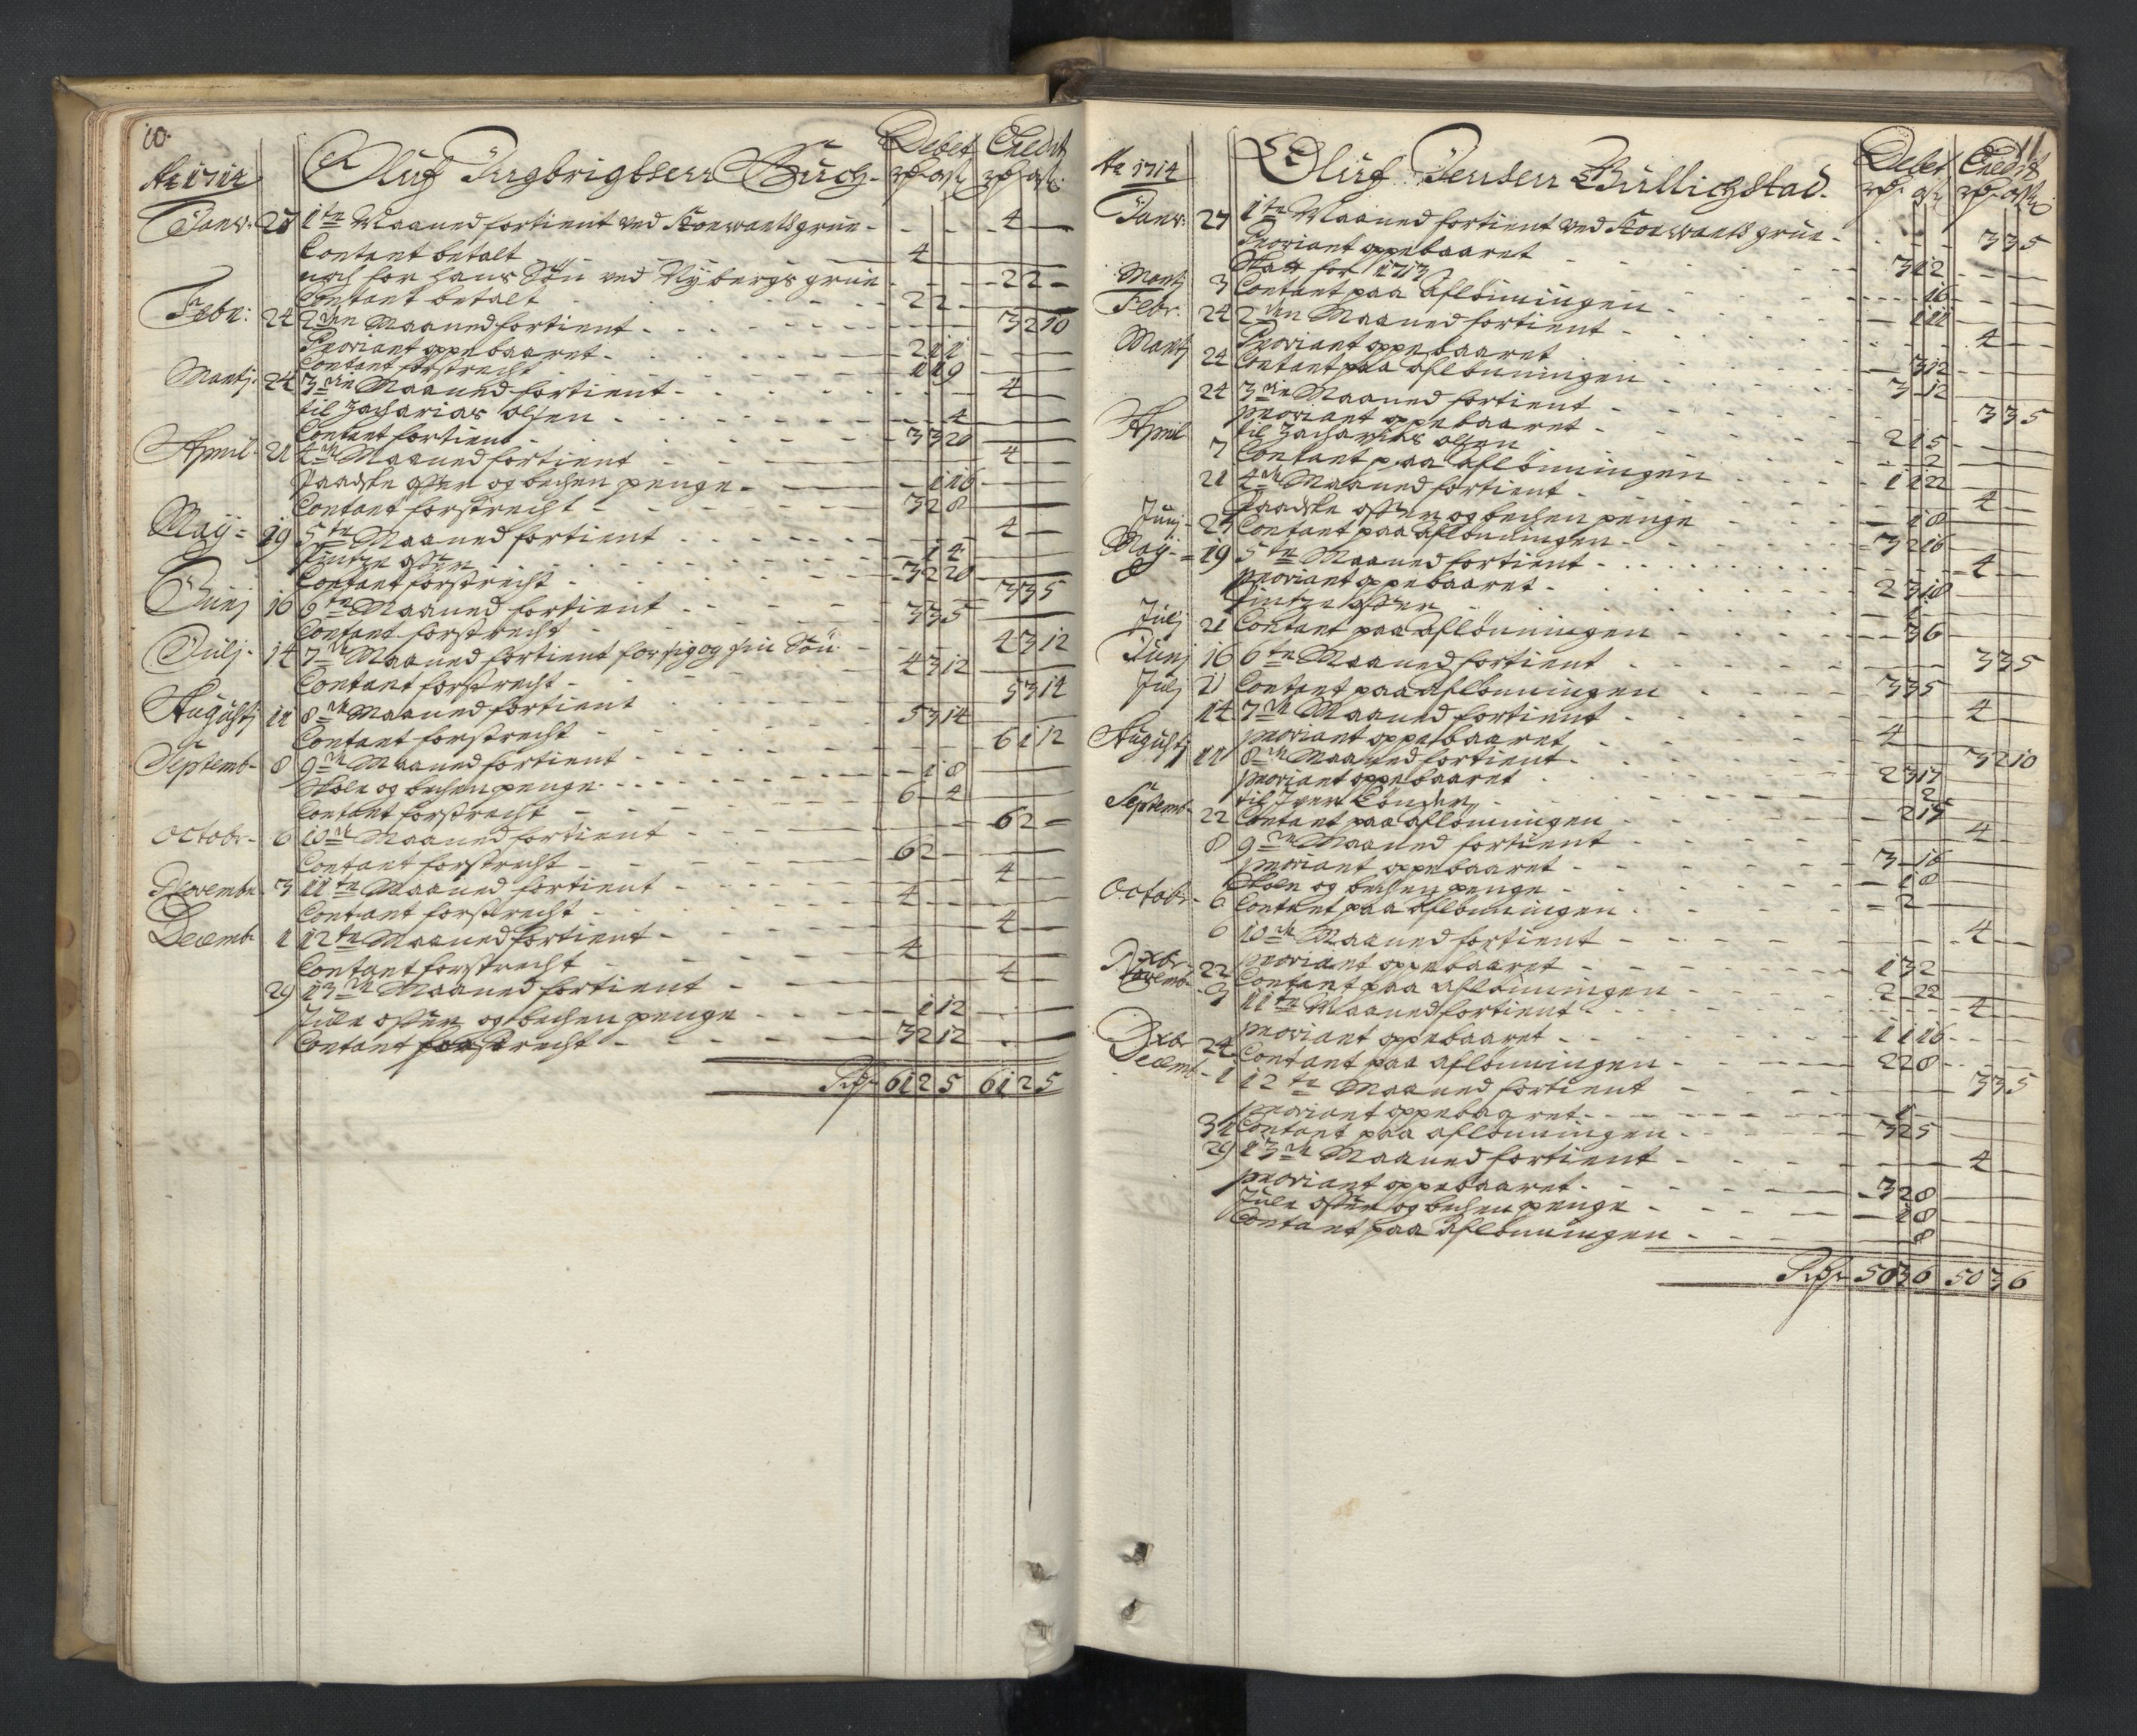 10.
Ao 1714 Oluf Ingbrigbsen Buch. Debet Credit
Janv: 27 1te Maaned fortient ved Kronprintzgrue - 4 -
Contant betalt - 4
noch for hans Søn ved Nybergs grue - 2 2 -
Contant betalt - 2 2 -
Febr: 24 2den Maaned fortient - 3 2 10
Proviant oppebaaret - 2 1 1
Contant forstrecht - 1 1 9
Martj: 24 3die Maaned fortient - 4 -
til Zacharias Olsen - 4
Contant fortient - 3 3 20
April 21 4de Maaned fortient - 4 -
Paaske offer og bechen penge - 1 16
Contant forstrecht - 3 2 8
Maij 19 5te Maaned fortient - 4 -
Pintze offer - 1 4
Contant forstrecht - 3 2 20
Junj 16 6te Maaned fortient - 3 3 5
Contant forstrecht - 3 3 5
Julj 14 7de Maaned fortient for sig og sin Søn - 4 3 12
Contant forstrecht - 4 3 12
Augustj 11 8de Maaned fortient - 5 3 14
Contant forstrecht - 5 3 14
Septemb 8 9de Maaned fortient - 6 1 12
Skole og bechenpenge - 1 8
Contant forstrecht - 6 - 4
Octobr 6 10de Maaned fortient - 6 2 -
Contant forstrecht - 6 2 -
Novembr 3 11te Maaned fortient - 4
Contant forstrecht - 4
Decemb 1 12te Maaned fortient - 4
Contant forstrecht - 4
29 13de Maaned fortient - 4 -
Jule offer og bechen penge - 1 12
Contant forstrecht - 3 2 12
61 2 5 61 2 5
11
Ao 1714 Oluf Jensen Bullichstad. Debet Credit
Janv: 27 1te Maaned fortient ved Kronprintz grue - 3 3 5
Proviant oppebaaret - 3 12
Skatt for 1713 - 16
Martj 3 Contant paa Aflønningen - 1 11
Febr. 24 2den Maaned fortient - 4
Proviant oppebaaret - 3 12
Martj 24 Contant paa Aflønningen - 3 - 12
24 3die Maaned fortient - 3 3 5
Proviant oppebaaret - 2 1 5
til Zacharias Olsen - 2
April 7 Contant paa Aflønningen - 1 1 22
21 4de Maaned fortient - 4
Paaske offer og bechen penge - 1 8
Junj 2 Contant paa Aflønningen - 3 2 16
Maij 19 5te Maaned fortient - 4
Proviant oppebaaret - 2 3 18
Pintze offer
Julj 21 Contant paa Aflønningen - 3 6
Junj 16 6te Maaned fortient - 3 3 5
Julj 21 Contant paa Aflønningen - 3 3 5
14 7de Maaned fortient - 4
Proviant oppebaaret - 4
Augustj 11 8de Maaned fortient - 3 2 10
Proviant oppebaaret - 2 3 17
til Iver
Septemb 22 Contant paa Aflønningen - 2 15
8 9de Maaned fortient - 4
Proviant oppebaaret - 3 - 16
Skole og bechen penge - 1 8
Octobr 6 Contant paa Aflønningen - 2
6 10de Maaned fortient - 4
Proviant oppebaaret - 1 3 2
Dxbr 22 Contant paa Aflønningen - 2 - 22
Novemb 3 11te Maaned fortient - 4
Proviant oppebaaret - 1 1 16
Dxbr 24 Contant paa Aflønningen - 2 2 8
Decemb 1 12te Maaned fortient - 3 3 5
Proviant oppebaaret - 1
31 Contant paa Aflønningen - 3 2 5
29 13de Maaned fortient - 4
Proviant oppebaaret - 3 2 8
Jule offer og bechen penge - 1 8
Contant paa Aflønningen - 8
50 3 6 50 3 6